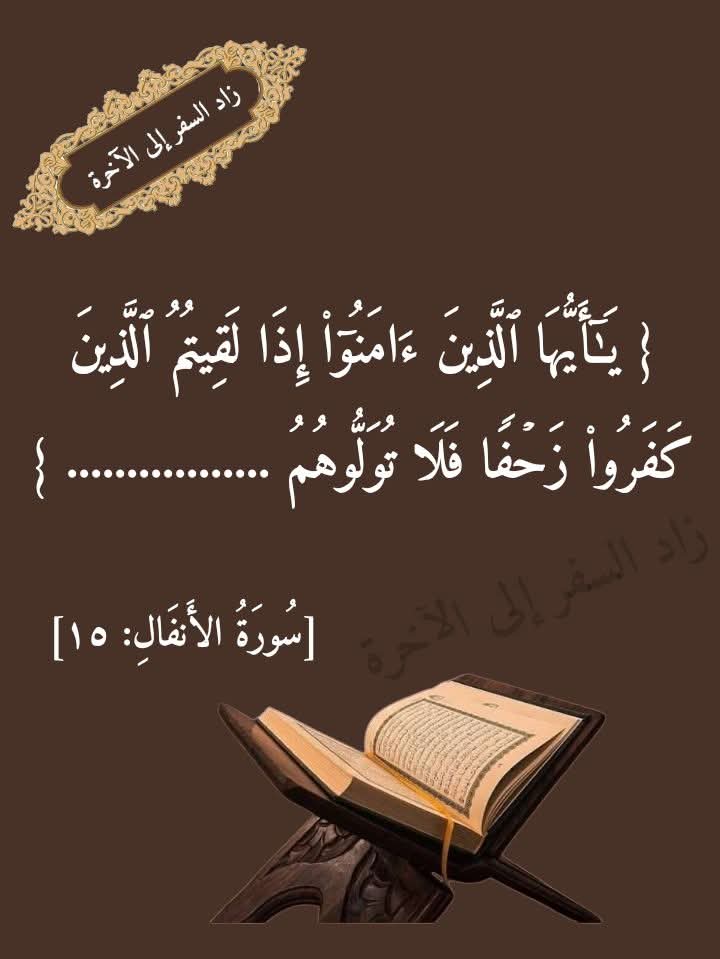 زاد السفر إلى الآخرة
{ يَـٰٓأَيُّهَا ٱلَّذِينَ ءَامَنُوٓا۟ إِذَا لَقِيتُمُ ٱلَّذِينَ
كَفَرُوا۟ زَحْفًا فَلَا تُوَلُّوهُمُ ................. }
زاد السفر إلى الآخرة
[سُورَةُ الأَنفَالِ: ١٥]